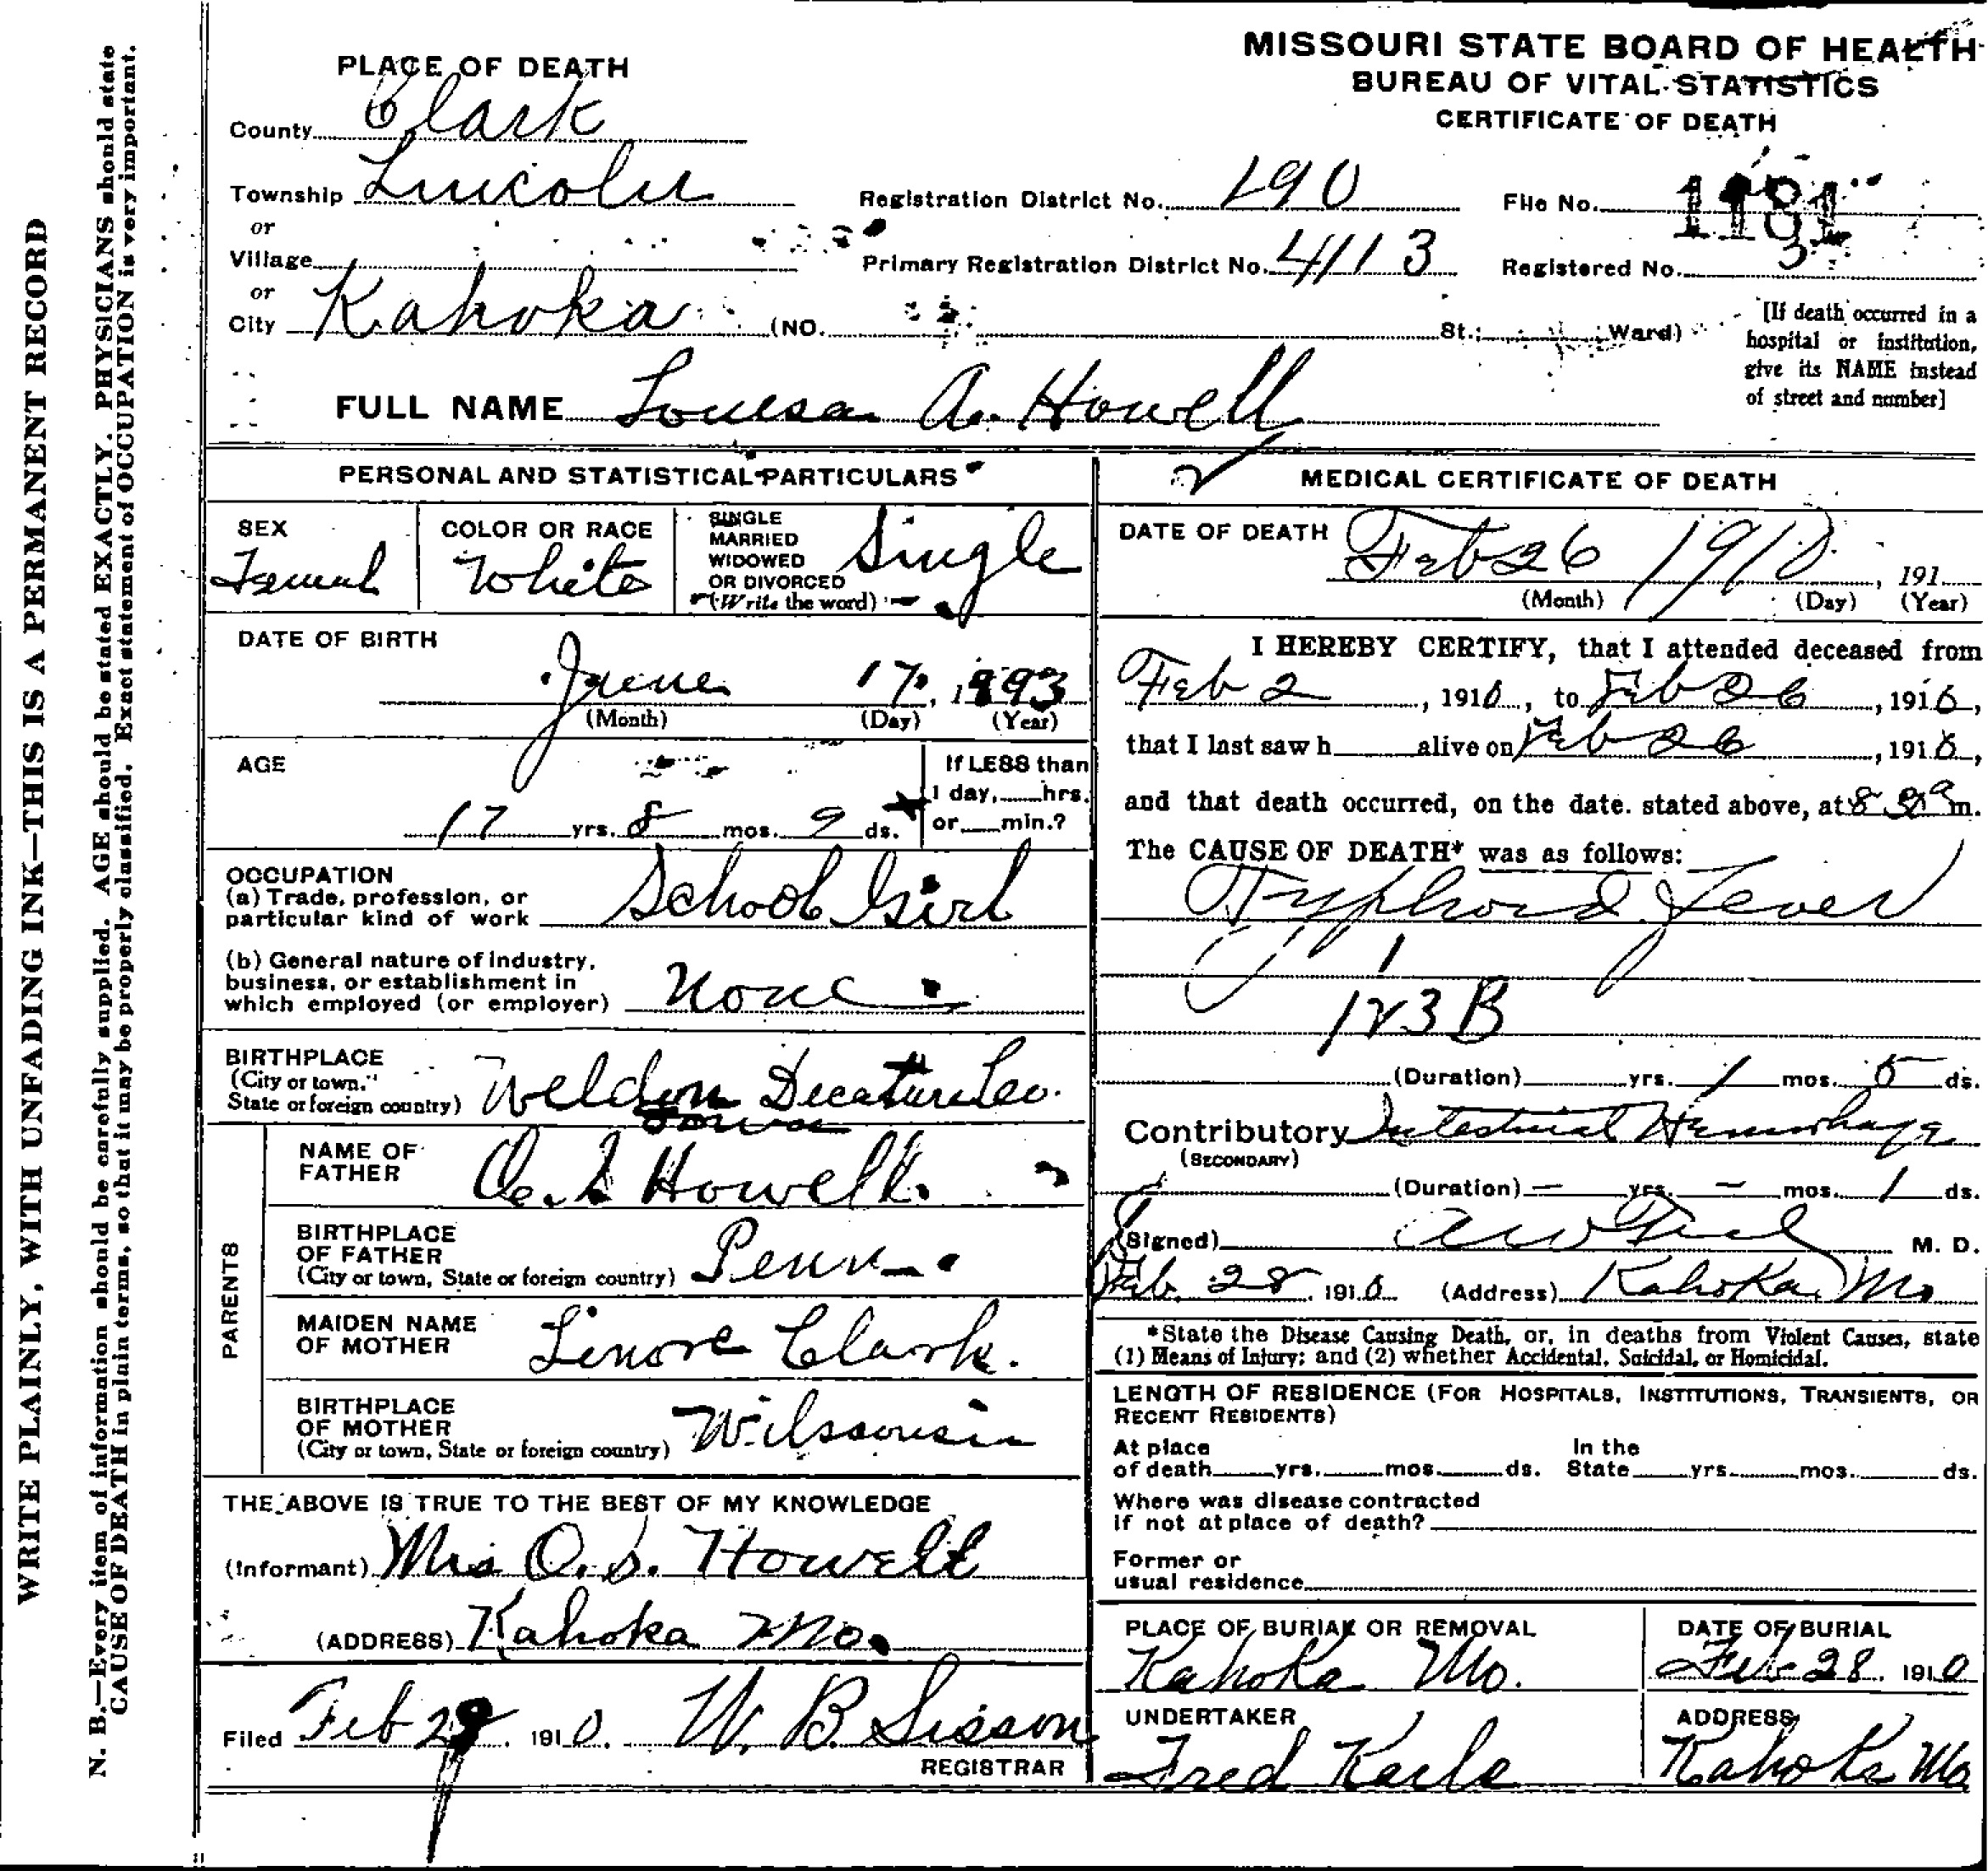 WRITE PLAINLY, WITH UNFADING INK—THIS IS A PERMANENT RECORD
N. B.—Every item of information should be carefully supplied. AGE should be stated EXACTLY. PHYSICIANS should state
CAUSE OF DEATH in plain terms, so that it may be properly classified. Exact statement of OCCUPATION is very important.
MISSOURI STATE BOARD OF HEALTH
BUREAU OF VITAL STATISTICS
CERTIFICATE OF DEATH
PLACE OF DEATH
County Clark
Township Lincoln
or
Village
or
City Kahoka (NO. St.; Ward)
Registration District No. 190
File No.
Primary Registration District No. 4113
Registered No. 3
[If death occurred in a
hospital or institution,
give its NAME instead
of street and number]
FULL NAME Louesa A. Howell
PERSONAL AND STATISTICAL PARTICULARS
SEX
Female
COLOR OR RACE
White
SINGLE
MARRIED
WIDOWED
OR DIVORCED
(Write the word)
Single
DATE OF BIRTH
June 17, 1893
(Month) (Day) (Year)
AGE
17 yrs. 8 mos. 9 ds.
If LESS than
1 day, hrs.
or min.?
OCCUPATION
(a) Trade, profession, or
particular kind of work School Girl
(b) General nature of industry,
business, or establishment in
which employed (or employer) None
BIRTHPLACE
(City or town,
State or foreign country) Weldon Decatur Co.
Iowa
PARENTS
NAME OF
FATHER
Howell
BIRTHPLACE
OF FATHER
(City or town, State or foreign country) Penn
MAIDEN NAME
OF MOTHER
Linore Clark.
BIRTHPLACE
OF MOTHER
(City or town, State or foreign country) Wilssonsin
THE ABOVE IS TRUE TO THE BEST OF MY KNOWLEDGE
(Informant) Mrs O. S. Howell
(ADDRESS) Kahoka Mo.
Filed Feb 1910. W. B. Sisson
REGISTRAR
MEDICAL CERTIFICATE OF DEATH
DATE OF DEATH Feb 26 1910, 191
(Month) (Day) (Year)
I HEREBY CERTIFY, that I attended deceased from
Feb 2, 1910, to Feb 26, 1910,
that I last saw h alive on Feb 26, 1910,
and that death occurred, on the date stated above, at m.
The CAUSE OF DEATH* was as follows:
Typhoid Fever
1
123 B
(Duration) yrs. 1 mos. 5 ds.
Contributory Intestinal Hemorhage
(SECONDARY)
(Duration) — yrs. — mos. 1 ds.
(Signed) M. D.
Feb. 28, 1910 (Address) Kahoka Mo
*State the Disease Causing Death, or, in deaths from Violent Causes, state
(1) Means of Injury; and (2) whether Accidental, Suicidal, or Homicidal.
LENGTH OF RESIDENCE (FOR HOSPITALS, INSTITUTIONS, TRANSIENTS, OR
RECENT RESIDENTS)
At place
of death yrs. mos. ds.
In the
State yrs. mos. ds.
Where was disease contracted
if not at place of death?
Former or
usual residence
PLACE OF BURIAL OR REMOVAL
Kahoka Mo.
DATE OF BURIAL
Feb 28, 1910
UNDERTAKER
Fred Karle
ADDRESS
Kahoka Mo